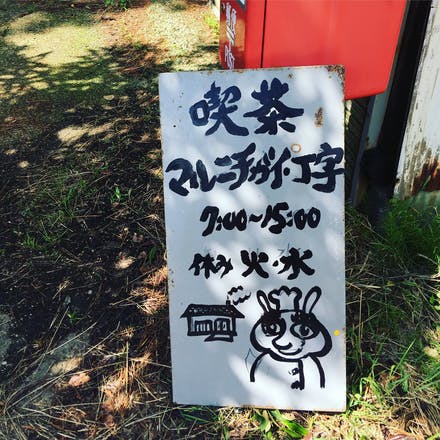 喫茶
マルニチガイ・丁字
7:00〜15:00
休み 火・水